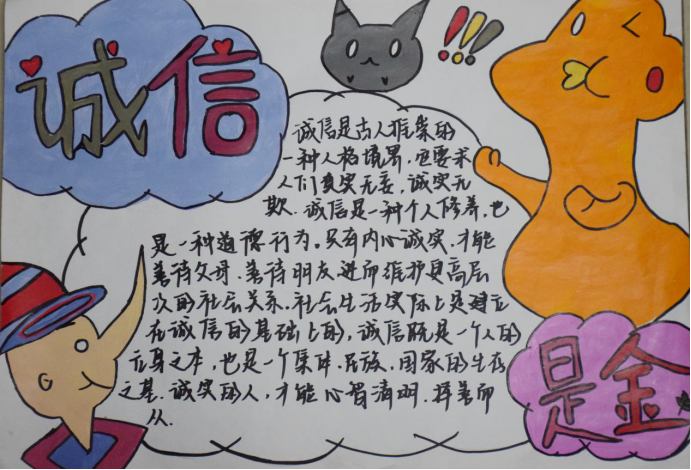 诚信
!!!
诚信是古人推崇的
一种人格境界,它要求
人们真实无妄,诚实无
欺.诚信是一种个人修养,也
是一种道德行为。只有内心诚实.才能
善待父母.善待朋友进而维护更高层
次的社会关系.社会生活实际上是建立
在诚信的基础上的,诚信既是一个人的
立身之本,也是一个集体.民族.国家的生存
之基.诚实的人,才能心智清明.择善而
从.
是金